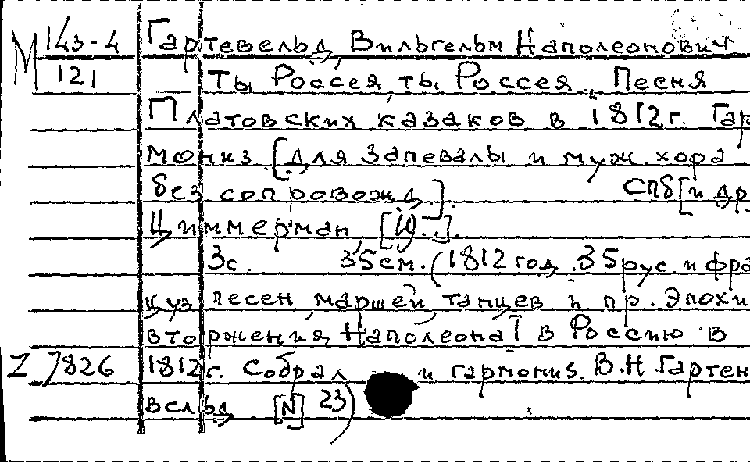 М 143-4 Гартевельд, Вильгельм Наполеонович
121 Ты Россея, ты Россея. Песня
Платовских казаков в 1812 г. Гар
мониз. [для запевалы и муж. хора
без сопровожд.]. СПб [и др.
Циммерман, [19..].
3с. 35см. (1812 год. 35 рус. и фран
цуз. песен, маршей, танцев и пр. эпохи
вторжения Наполеона I в Россию в
Z 7826 1812 г. Собрал и гармониз. В.Н. Гарте
вельд. [N] 23)